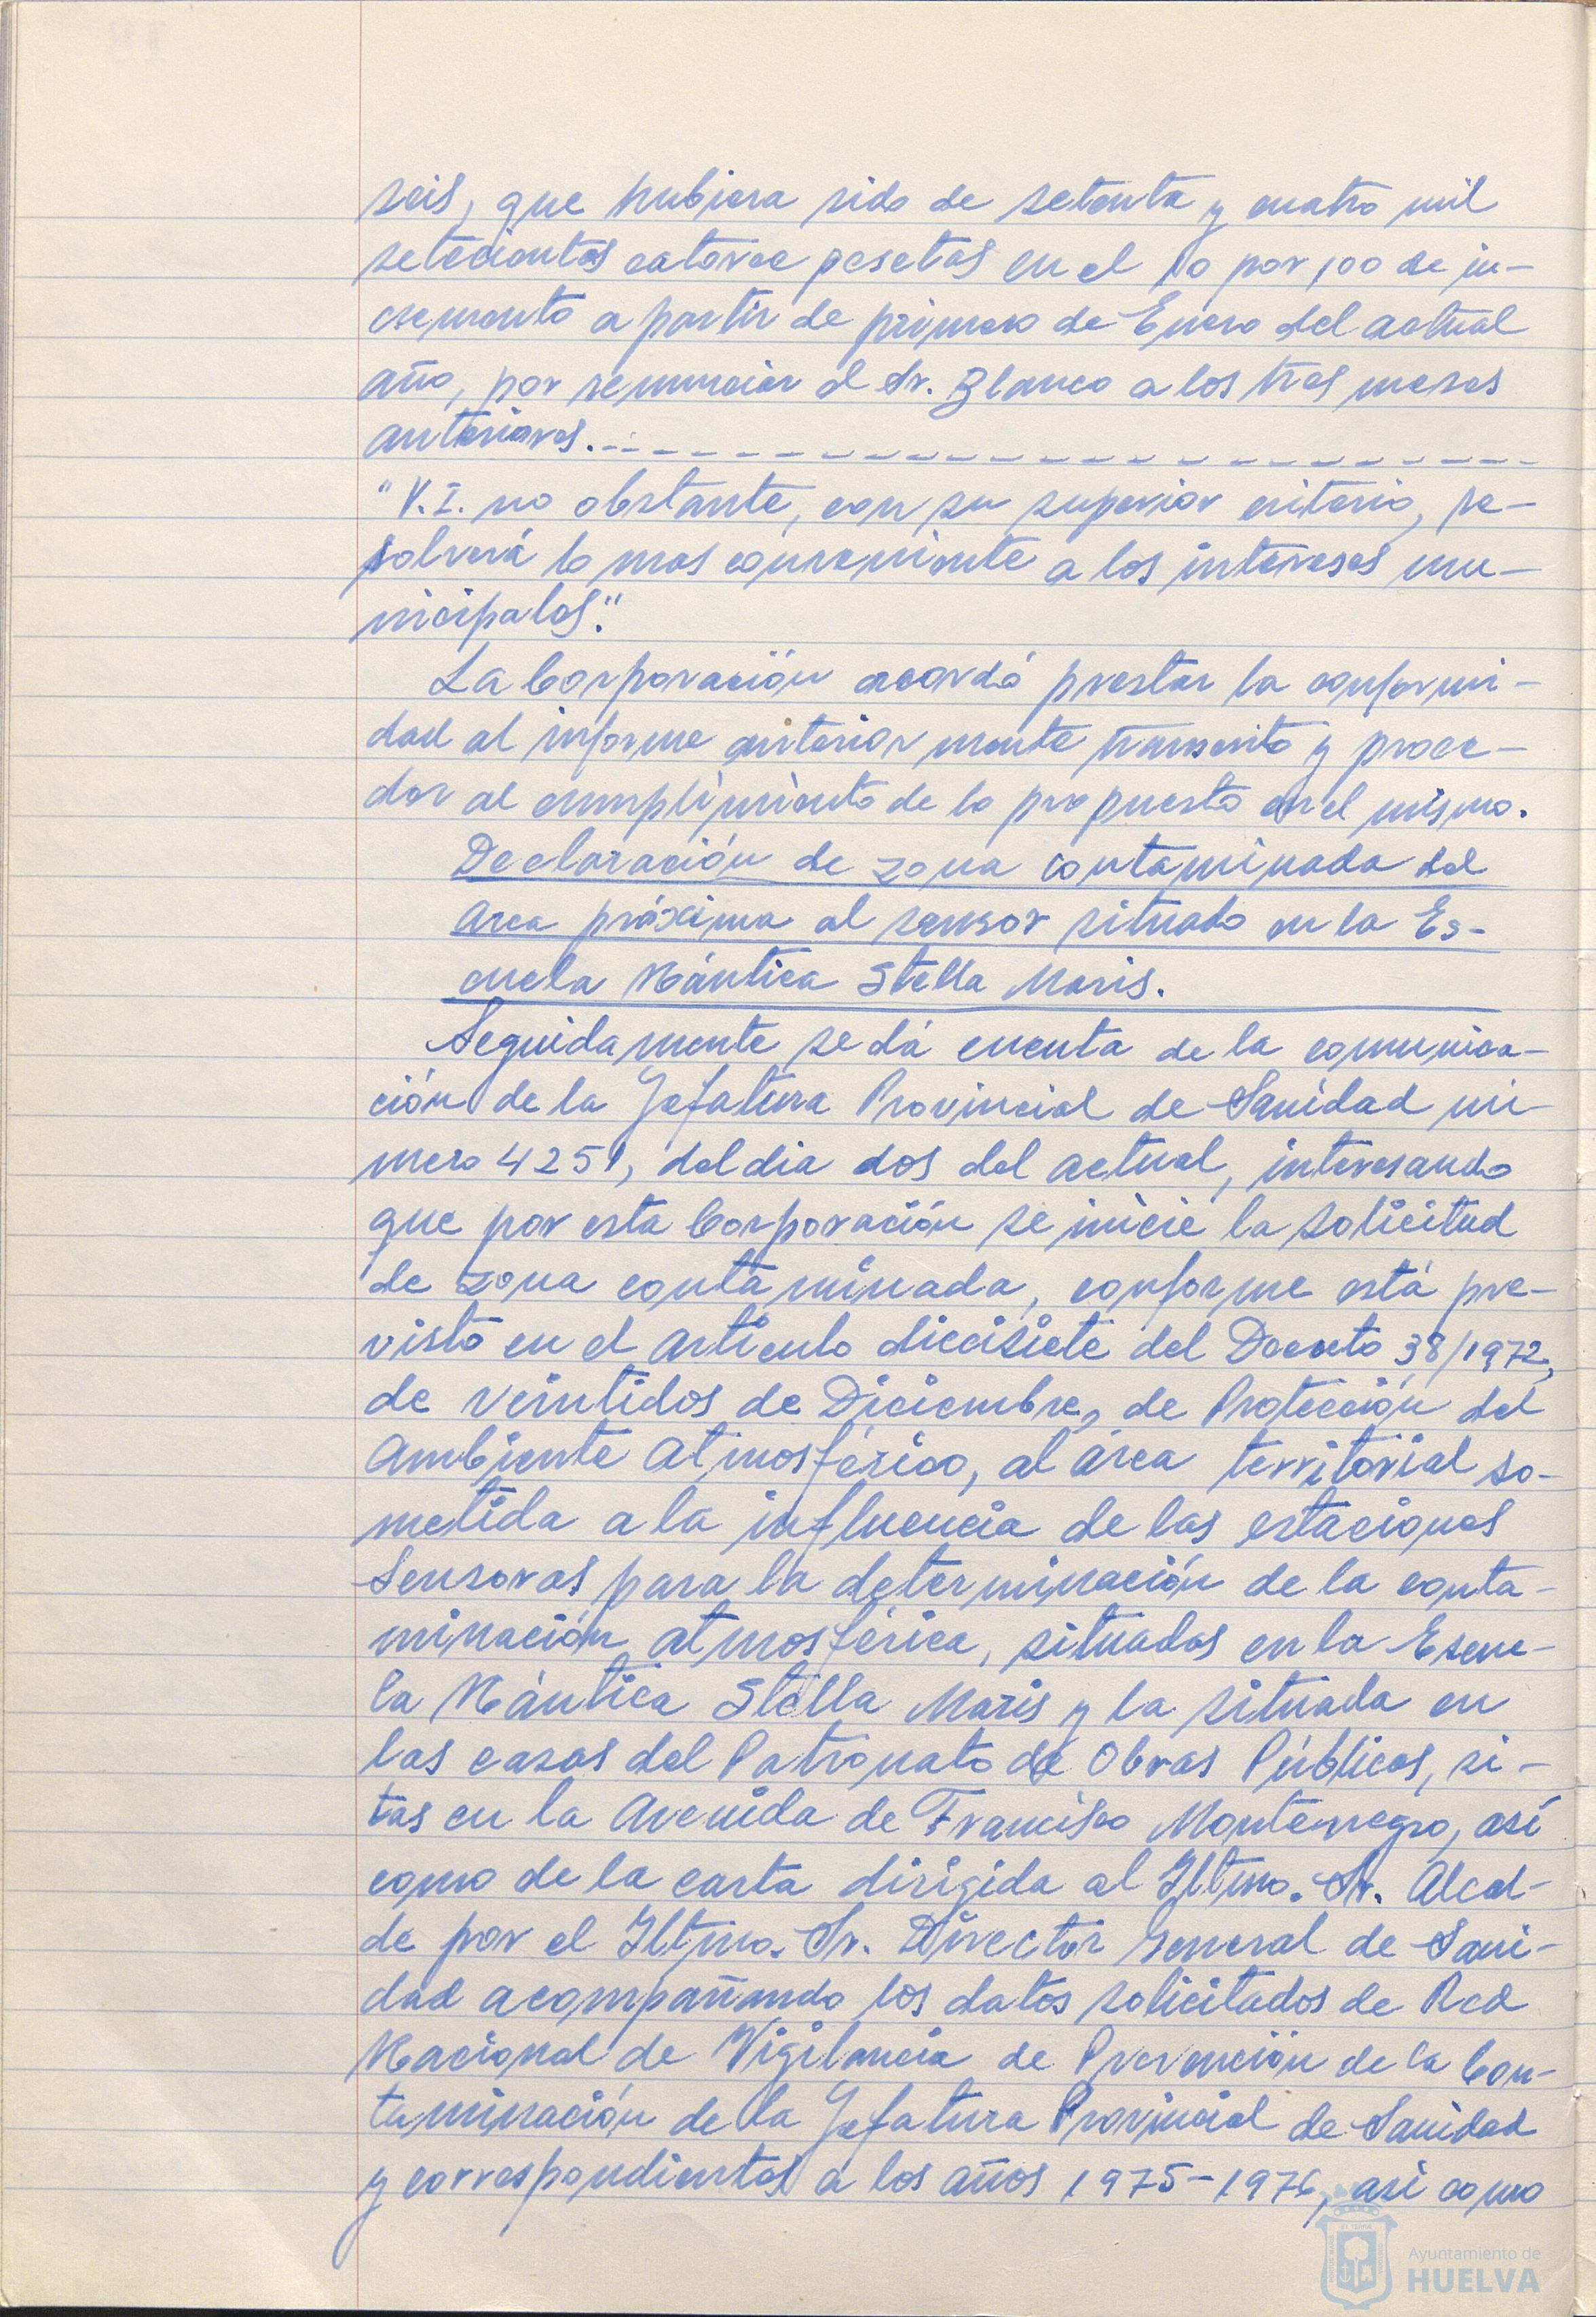 seis, que hubiera sido de setenta y cuatro mil
setecientas catorce pesetas en el 10 por 100 de in-
cremento a partir de primero de Enero del actual
año, por renunciar el Sr. Blanco a los tres meses
anteriores.
"V.I. no obstante, con su superior criterio, re-
solverá lo mas conveniente a los intereses mu-
nicipales".
La Corporación acordó prestar la conformi-
dad al informe anteriormente transcrito y proce-
der al cumplimiento de lo propuesto en el mismo.
Declaración de zona contaminada del
area próxima al sensor situado en la Es-
cuela Náutica Stella Maris.
Seguidamente se dá cuenta de la comunica-
ción de la Jefatura Provincial de Sanidad nú-
mero 4251, del dia dos del actual, interesando
que por esta Corporación se inicie la solicitud
de zona contaminada, conforme está pre-
visto en el artículo diecisiete del Decreto 38/1972,
de veintidos de Diciembre, de Protección del
Ambiente Atmosférico, al área territorial so-
metida a la influencia de las estaciones
Sensoras para la determinación de la conta-
minación atmosférica, situadas en la Escue-
la Náutica Stella Maris y la situada en
las casas del Patronato de Obras Públicas, si-
tas en la Avenida de Francisco Montenegro, así
como de la carta dirigida al Iltmo. Sr. Alcal-
de por el Iltmo. Sr. Director General de Sani-
dad acompañando los datos solicitados de Red
Nacional de Vigilancia de Prevención de la Con-
taminación de la Jefatura Provincial de Sanidad
y correspondientes a los años 1975-1976, así como
Ayuntamiento de
HUELVA